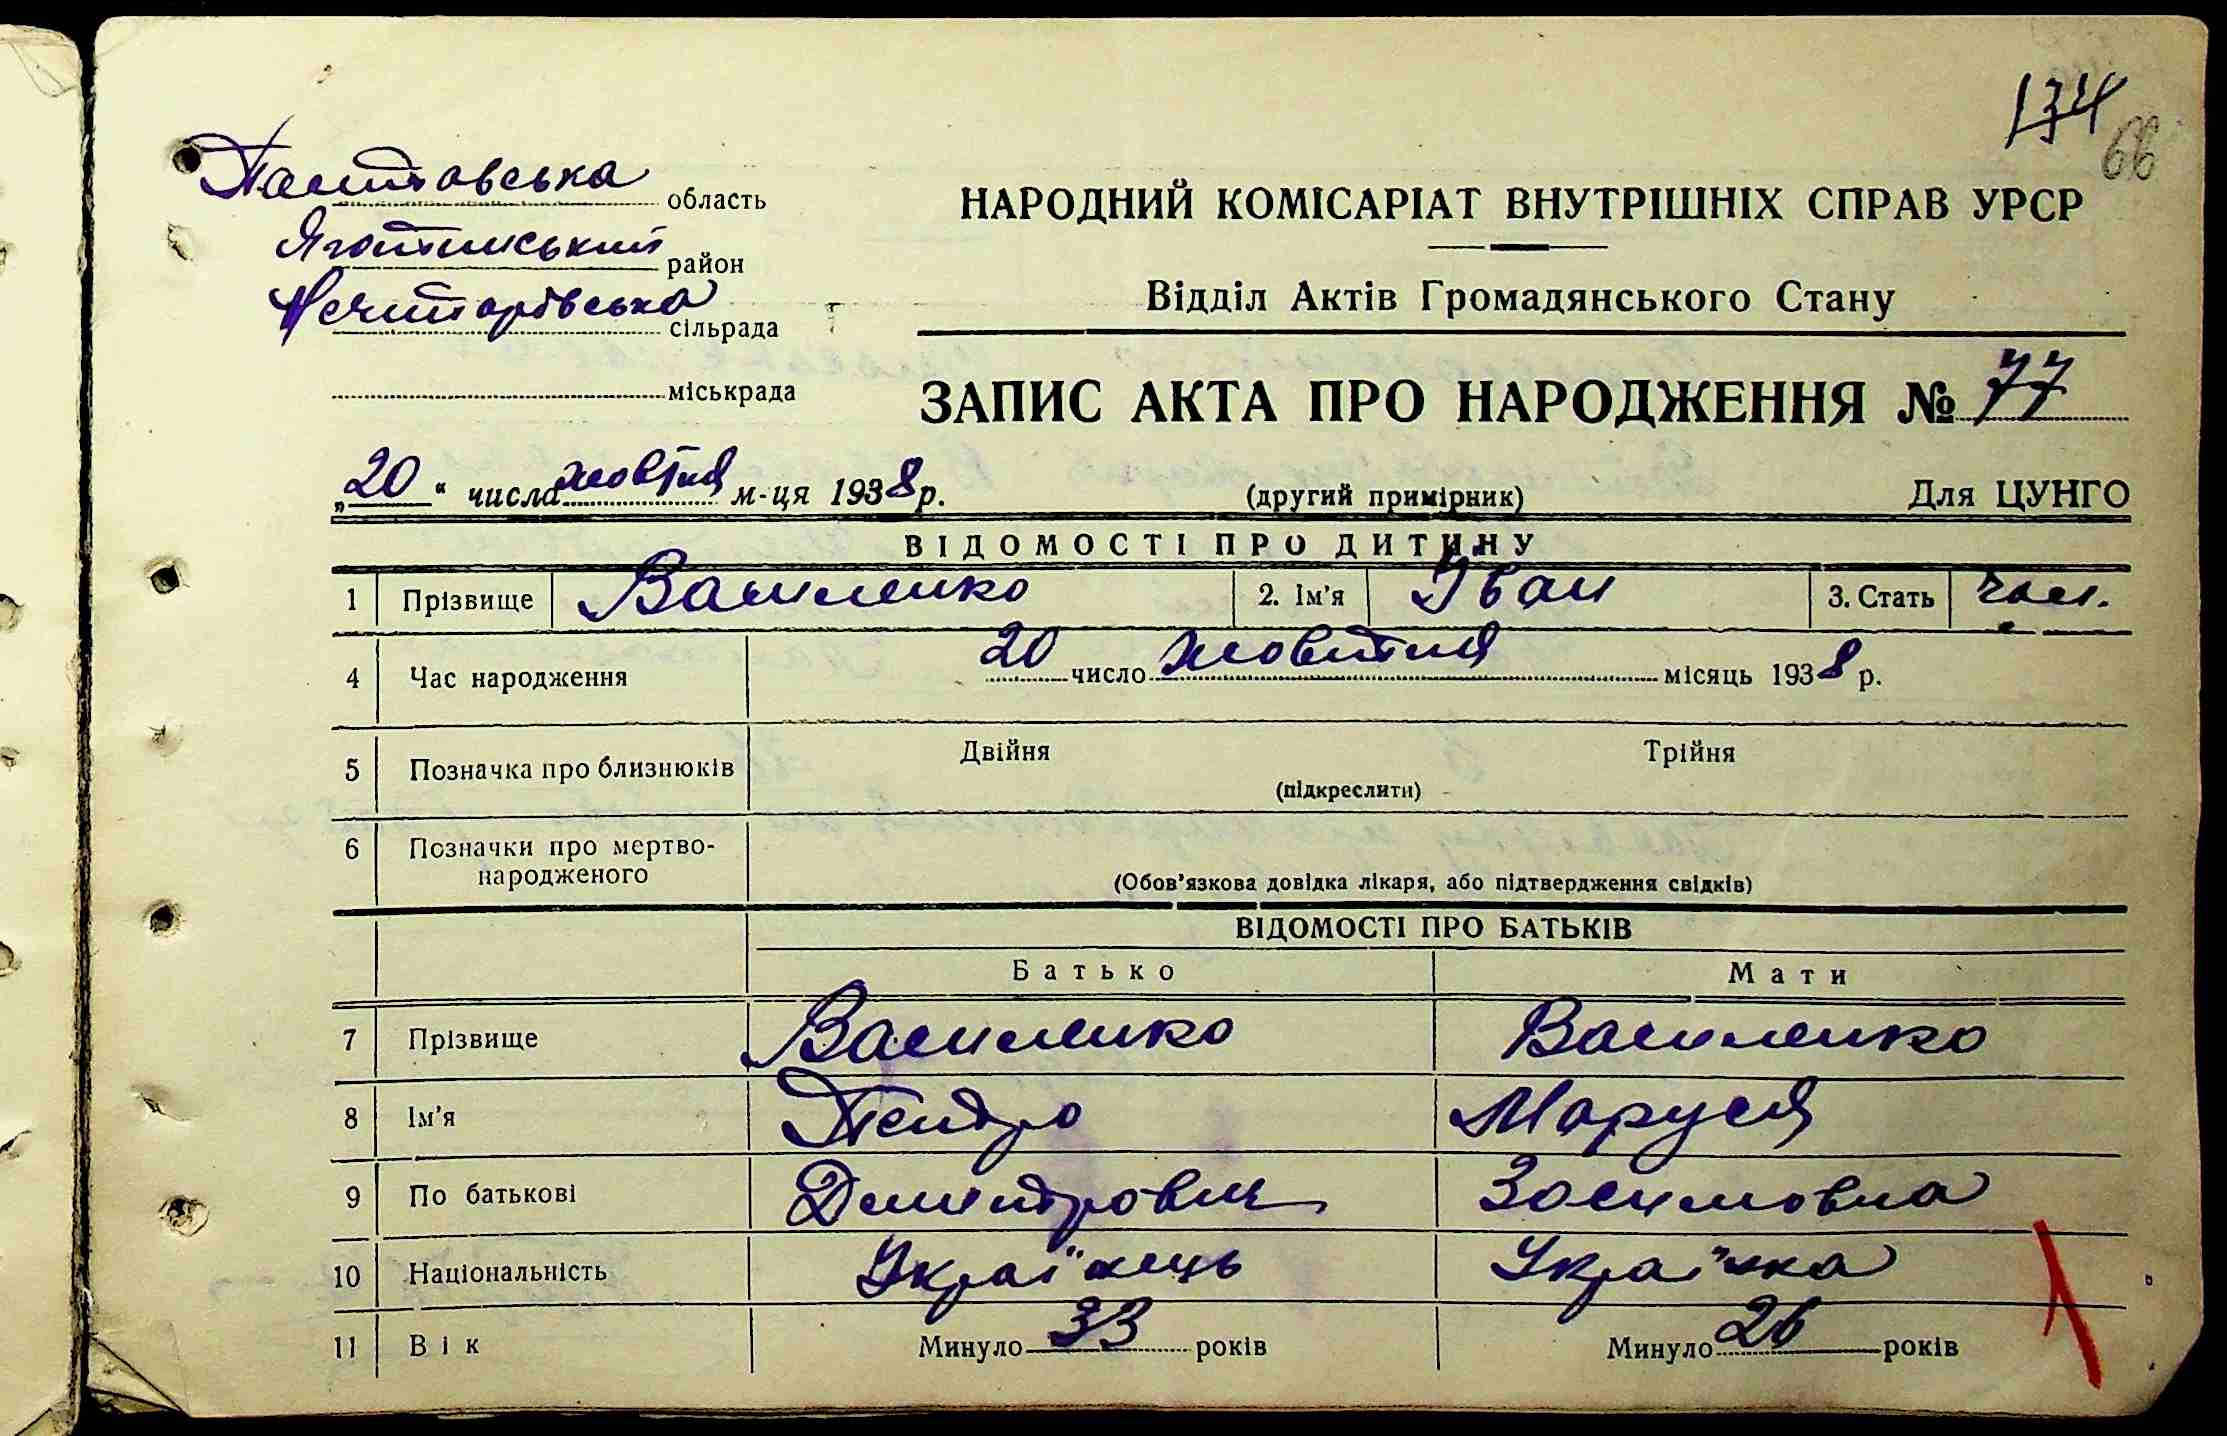 134
66
Полтавська область
Яготинський район
Нечипорівська сільрада
міськрада
НАРОДНИЙ КОМІСАРІАТ ВНУТРІШНІХ СПРАВ УРСР
Відділ Актів Громадянського Стану
ЗАПИС АКТА ПРО НАРОДЖЕННЯ № 77
„20“ числа жовтня м-ця 1938 р. (другий примірник) Для ЦУНГО
ВІДОМОСТІ ПРО ДИТИНУ
1 Прізвище Василенко 2. Ім’я Іван 3. Стать чол.
4 Час народження 20 число жовтня місяць 1938 р.
5 Позначка про близнюків Двійня Трійня
(підкреслити)
6 Позначки про мертво-
народженого (Обов’язкова довідка лікаря, або підтвердження свідків)
ВІДОМОСТІ ПРО БАТЬКІВ
Батько Мати
7 Прізвище Василенко Василенко
8 Ім’я Петро Маруся
9 По батькові Дмитрович Зосимовна
10 Національність Українець Українка
11 Вік Минуло 33 років Минуло 26 років